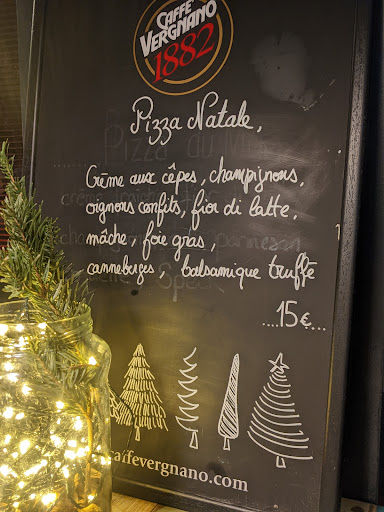 CAFFÈ
VERGNANO
1882
Pizza Natale,
Crème aux cêpes, champignons,
oignons confits, fior di latte,
mâche, foie gras,
canneberges, balsamique truffe
....15€...
caffevergnano.com